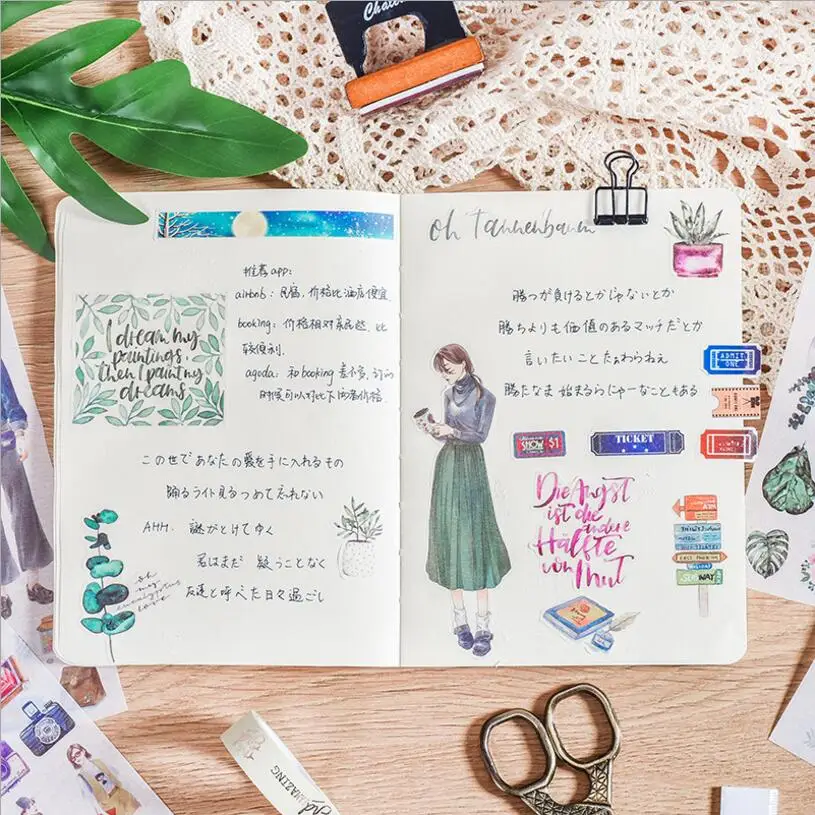 I dream my
paintings,
then I paint my
dreams
推荐app:
airbnb: 民宿,价格比酒店便宜
booking: 价格相对亲民些,比
较便利.
agoda: 和booking差不多,订的
时候可以对比下两者价格.
この世であなたの愛を手に入れるもの
踊るライト見るつめて忘れない
AHH. 謎がとけてゆく
君はまだ 疑うことなく
友達と呼べた日々過ごし
oh
my
eucalyptus
love
oh Tannenbaum
勝つが負けるとかじゃないとか
勝ちよりも価値のあるマッチだとか
言いたいことたぁわらねぇ
勝たなま始まるらにゃーなこともある
ADMIT
ONE
SHOW $1
TICKET
Die Angst
ist die
andere
Hälfte
von Mut
HOLIDAY
SUBWAY
AMAZING